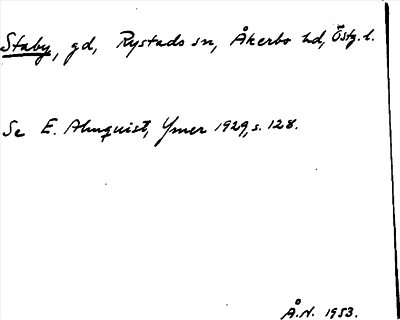 Staby, gd, Rystads sn, Åkerbo hd, Östg. l.
Se E. Almquist, Ymer 1929, s. 128.
Å.N. 1953.